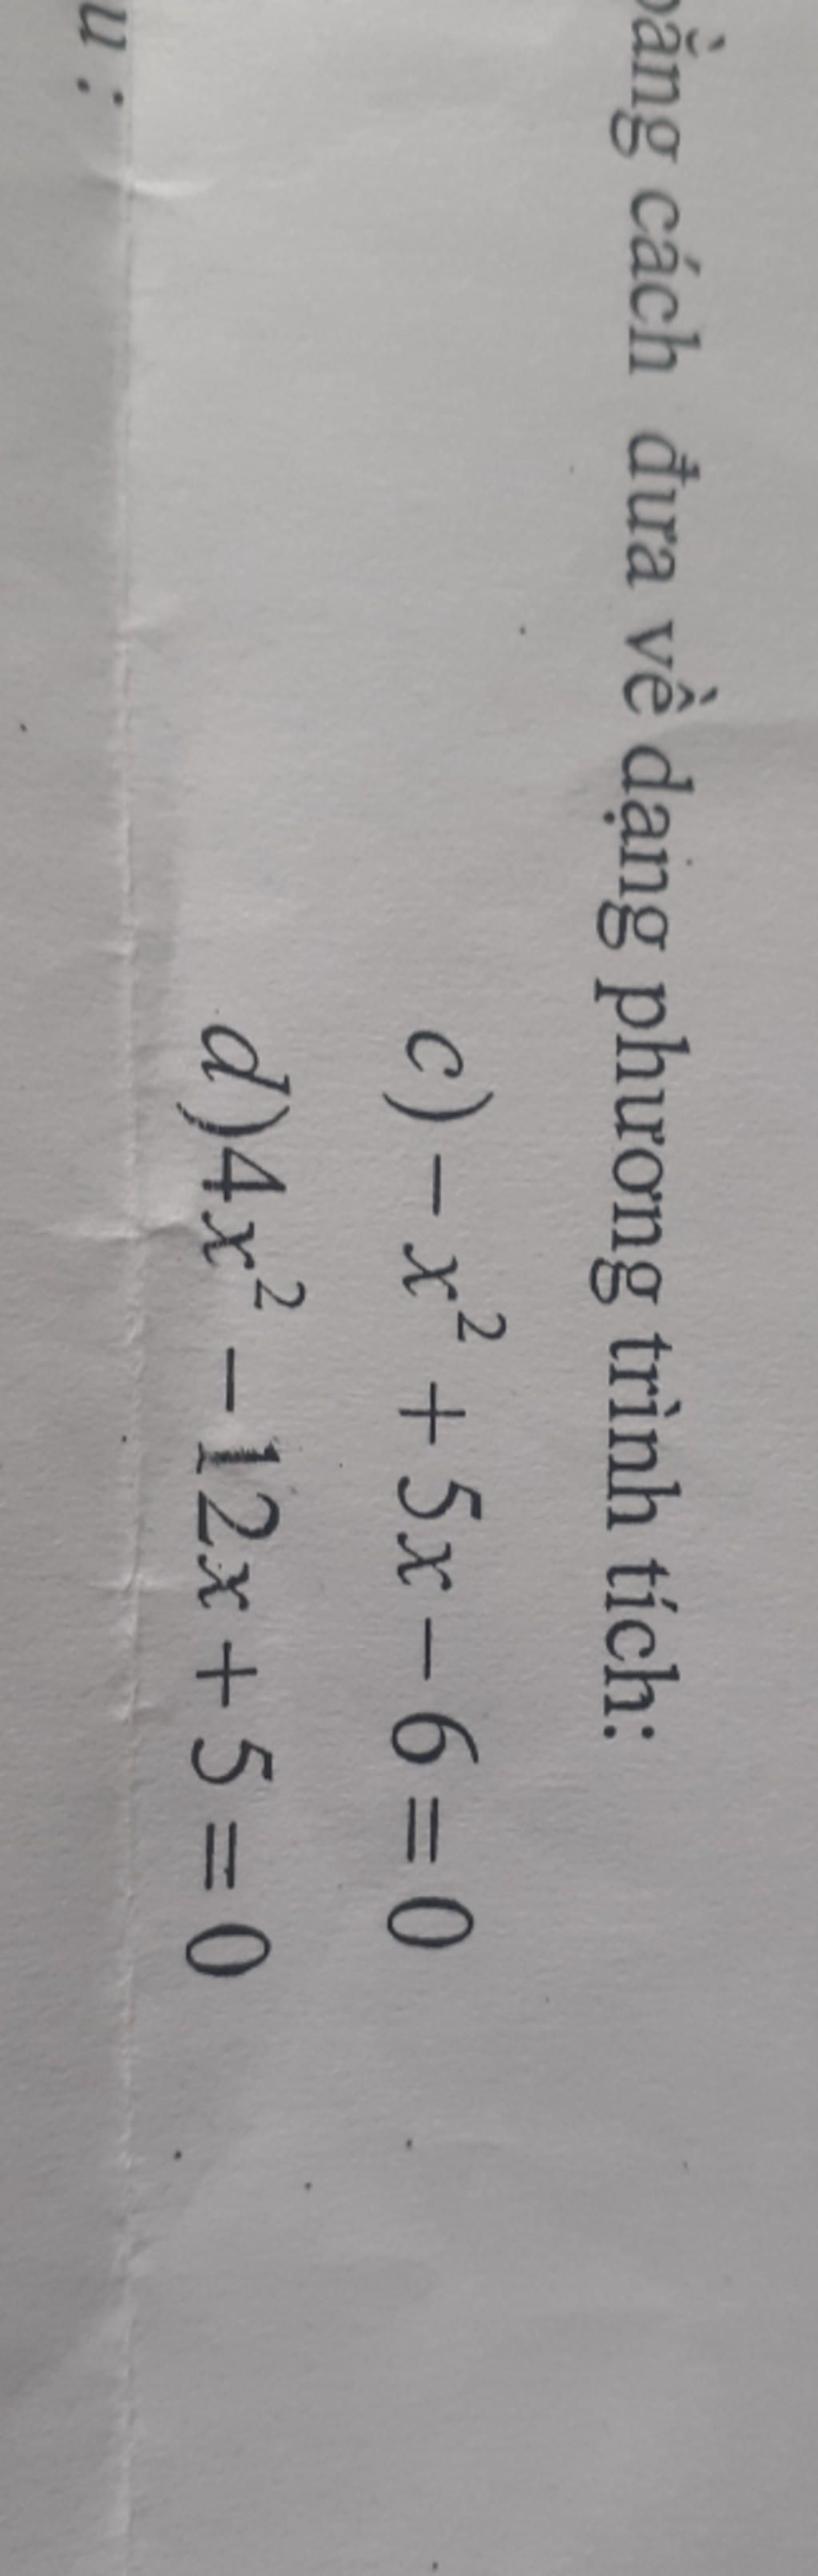 bằng cách đưa về dạng phương trình tích:
c) - x² + 5x - 6 = 0
d)4x² - 12x + 5 = 0
u :